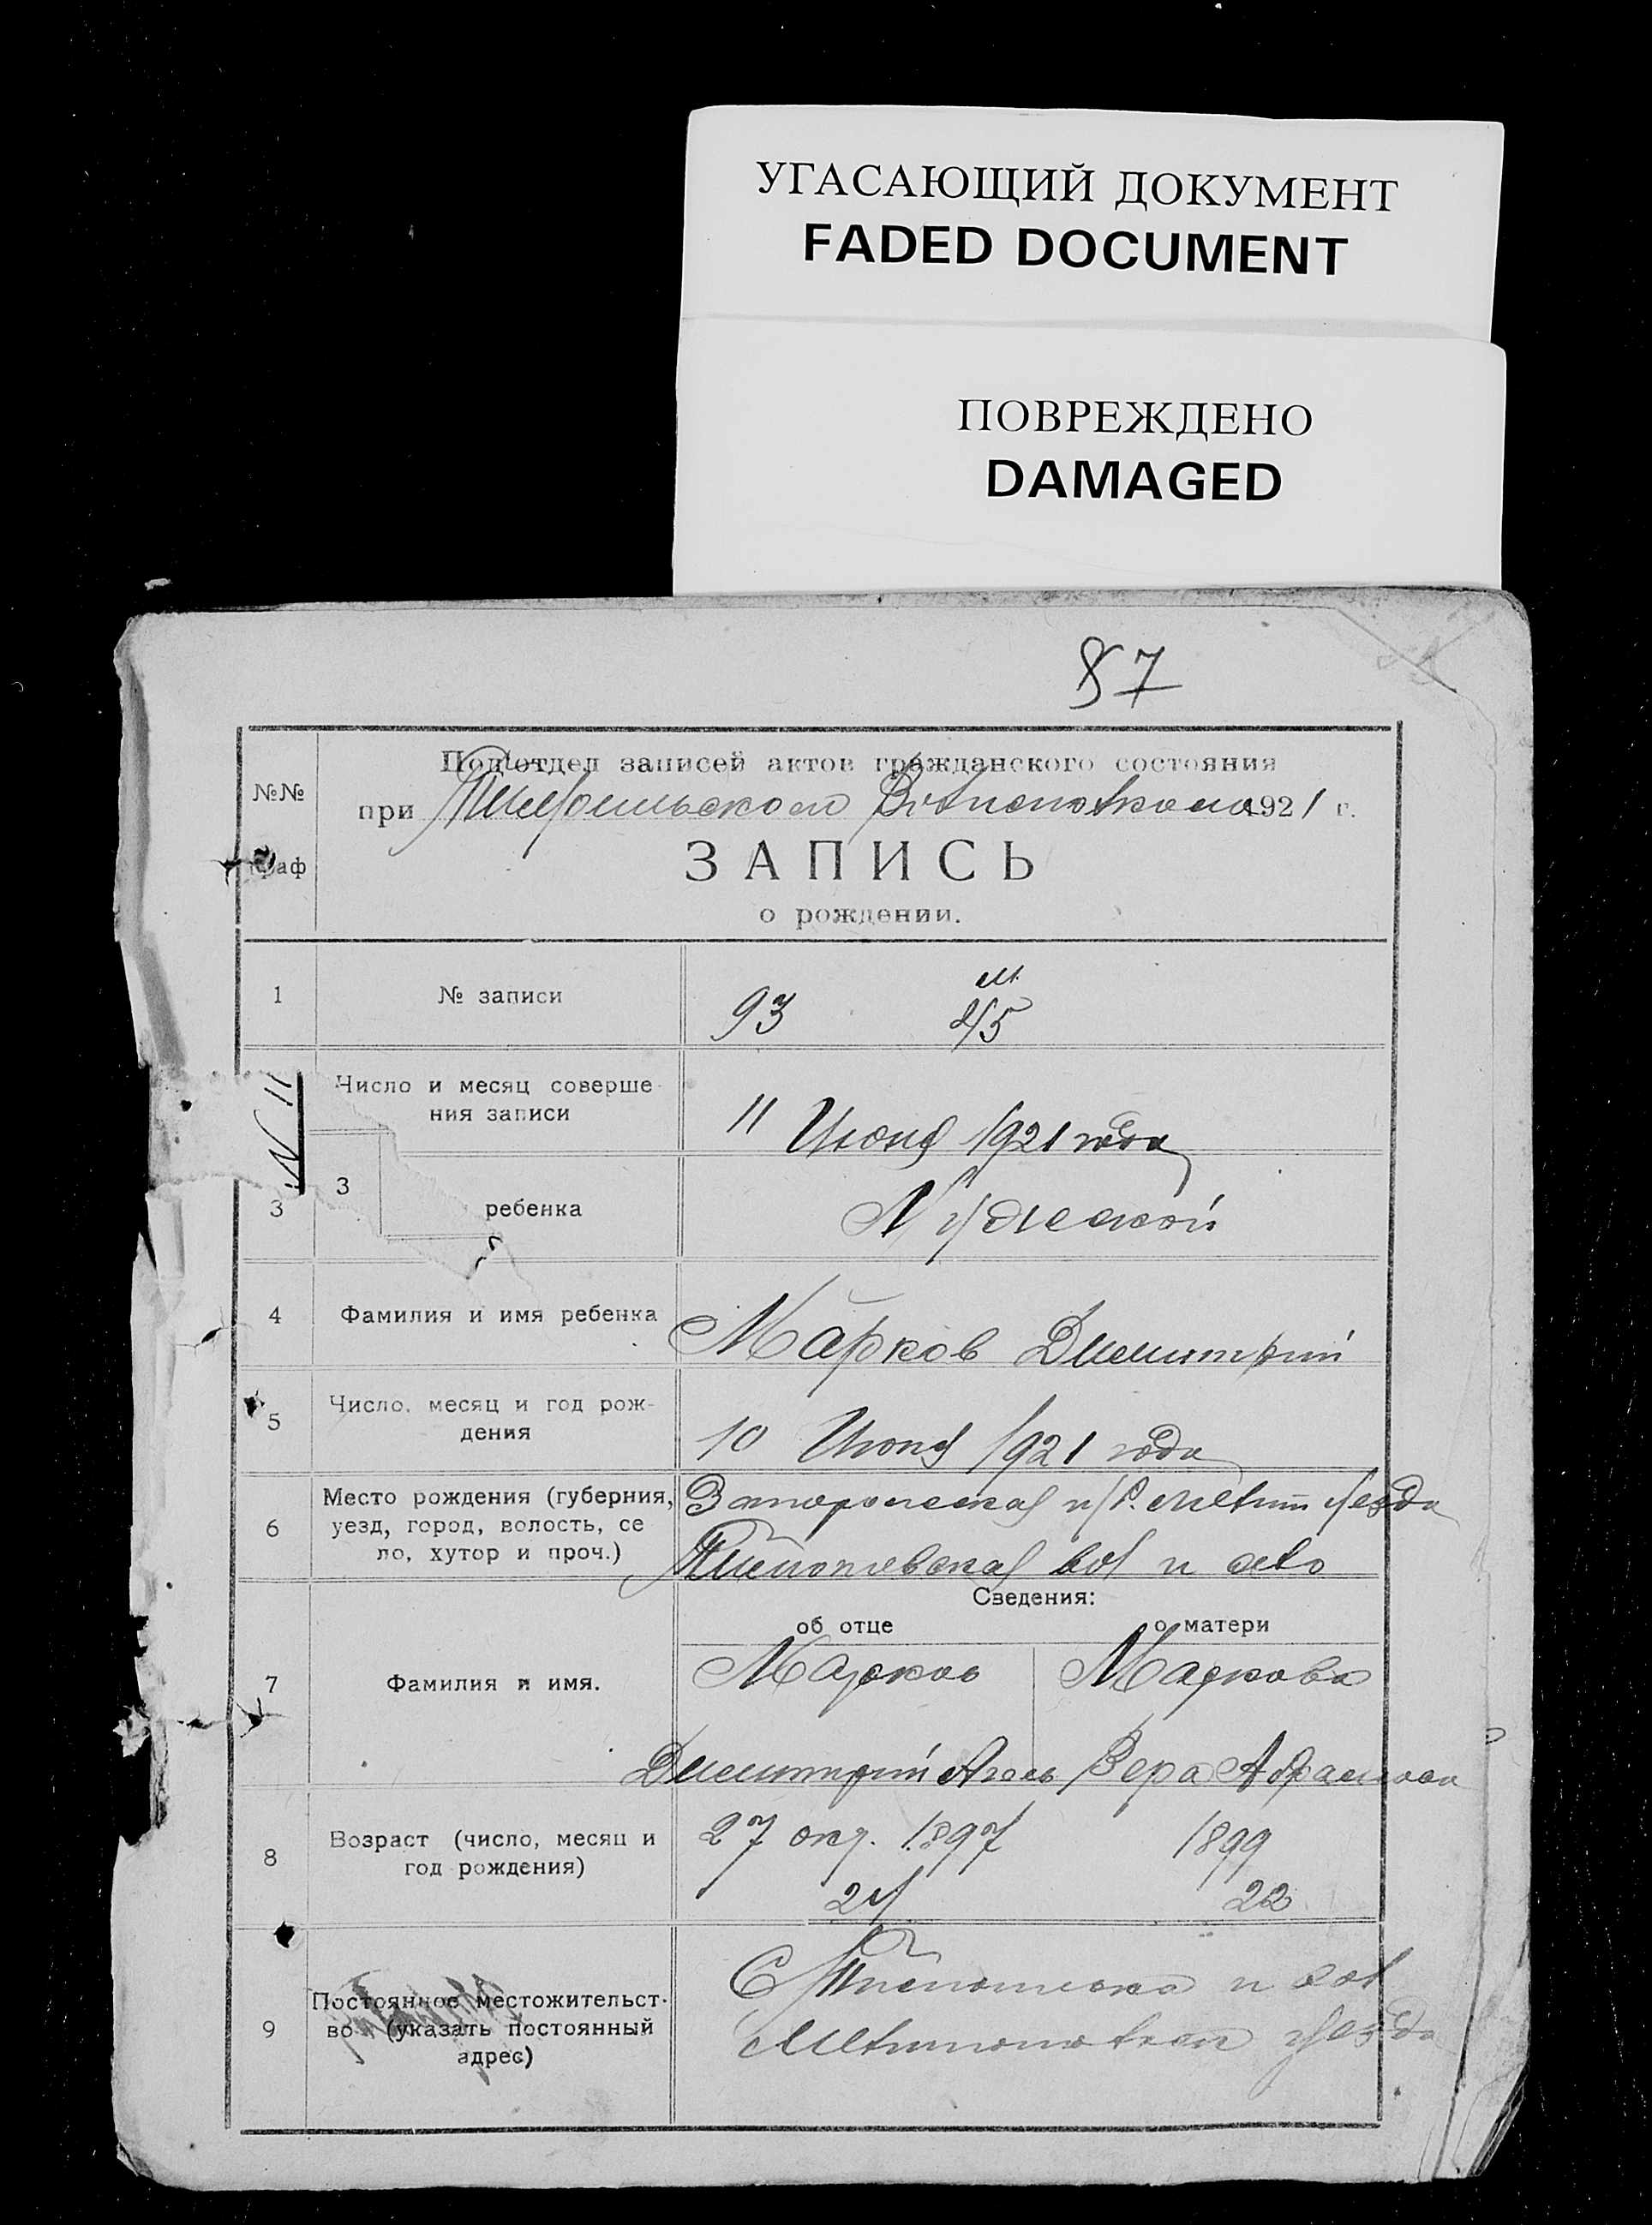 УГАСАЮЩИЙ ДОКУМЕНТ
FADED DOCUMENT
ПОВРЕЖДЕНО
DAMAGED
87
№№
граф
Под'отдел записей актов гражданского состояния
при 1921 г.
ЗАПИСЬ
о рождении.
1 № записи 93 м. 45
Число и месяц соверше-
ния записи
11 Июня 1921 года
№ 11
3
3 ребенка Мужской
4 Фамилия и имя ребенка Марков Димитрий
5 Число, месяц и год рож-
дения
10 Июня 1921 года
6 Место рождения (губерния,
уезд, город, волость, се
ло, хутор и проч.)
Запорожская уезда
вол и село
Сведения:
об отце о матери
7 Фамилия и имя. Марков Маркова
Димитрий Вера
8 Возраст (число, месяц и
год рождения)
27 окт. 1897 1899
24 22
9 Постоянное местожительст-
во (указать постоянный
адрес)
С и вол
уезда